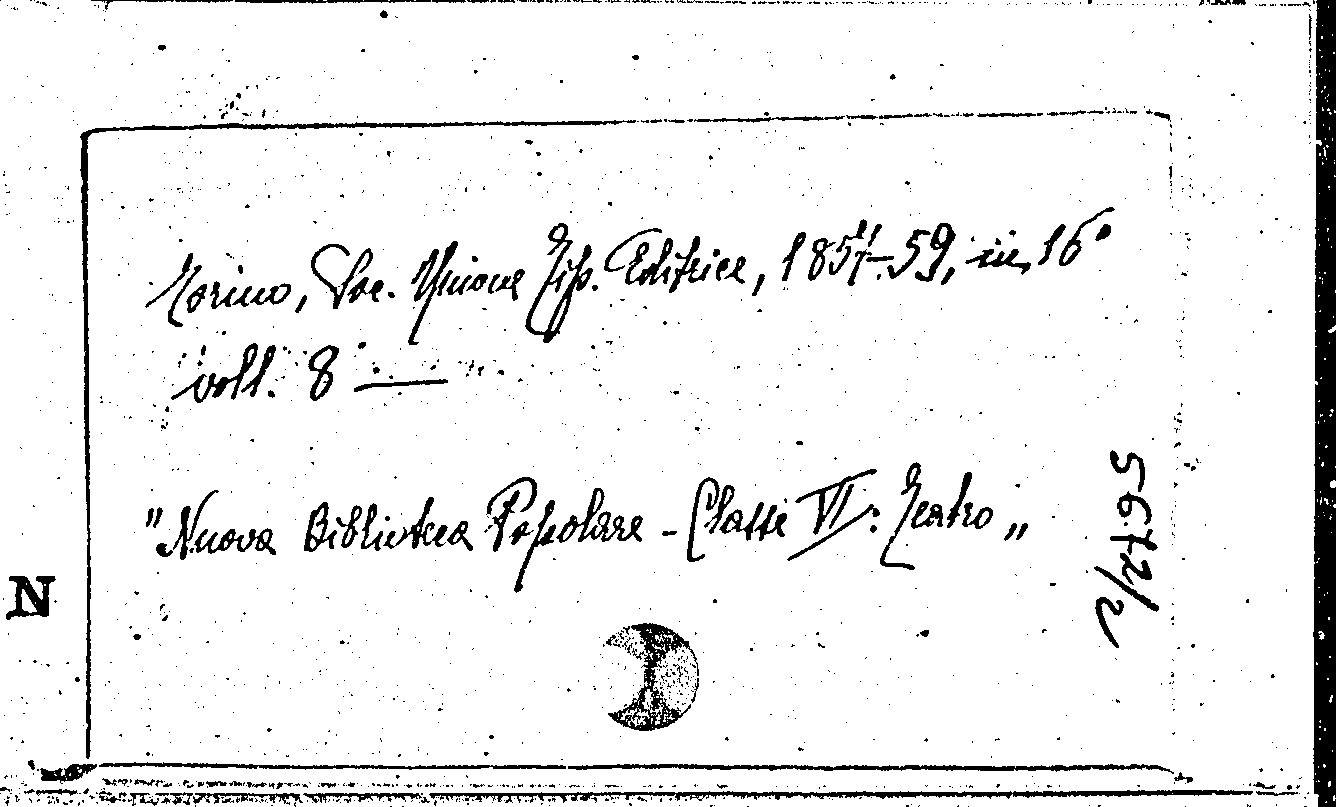 Torino, Soc. Unione Tip. Editrice, 1857-59, in 16°
voll. 8 —
"Nuova Biblioteca Popolare - Classe VI: Teatro „
5672/2
N